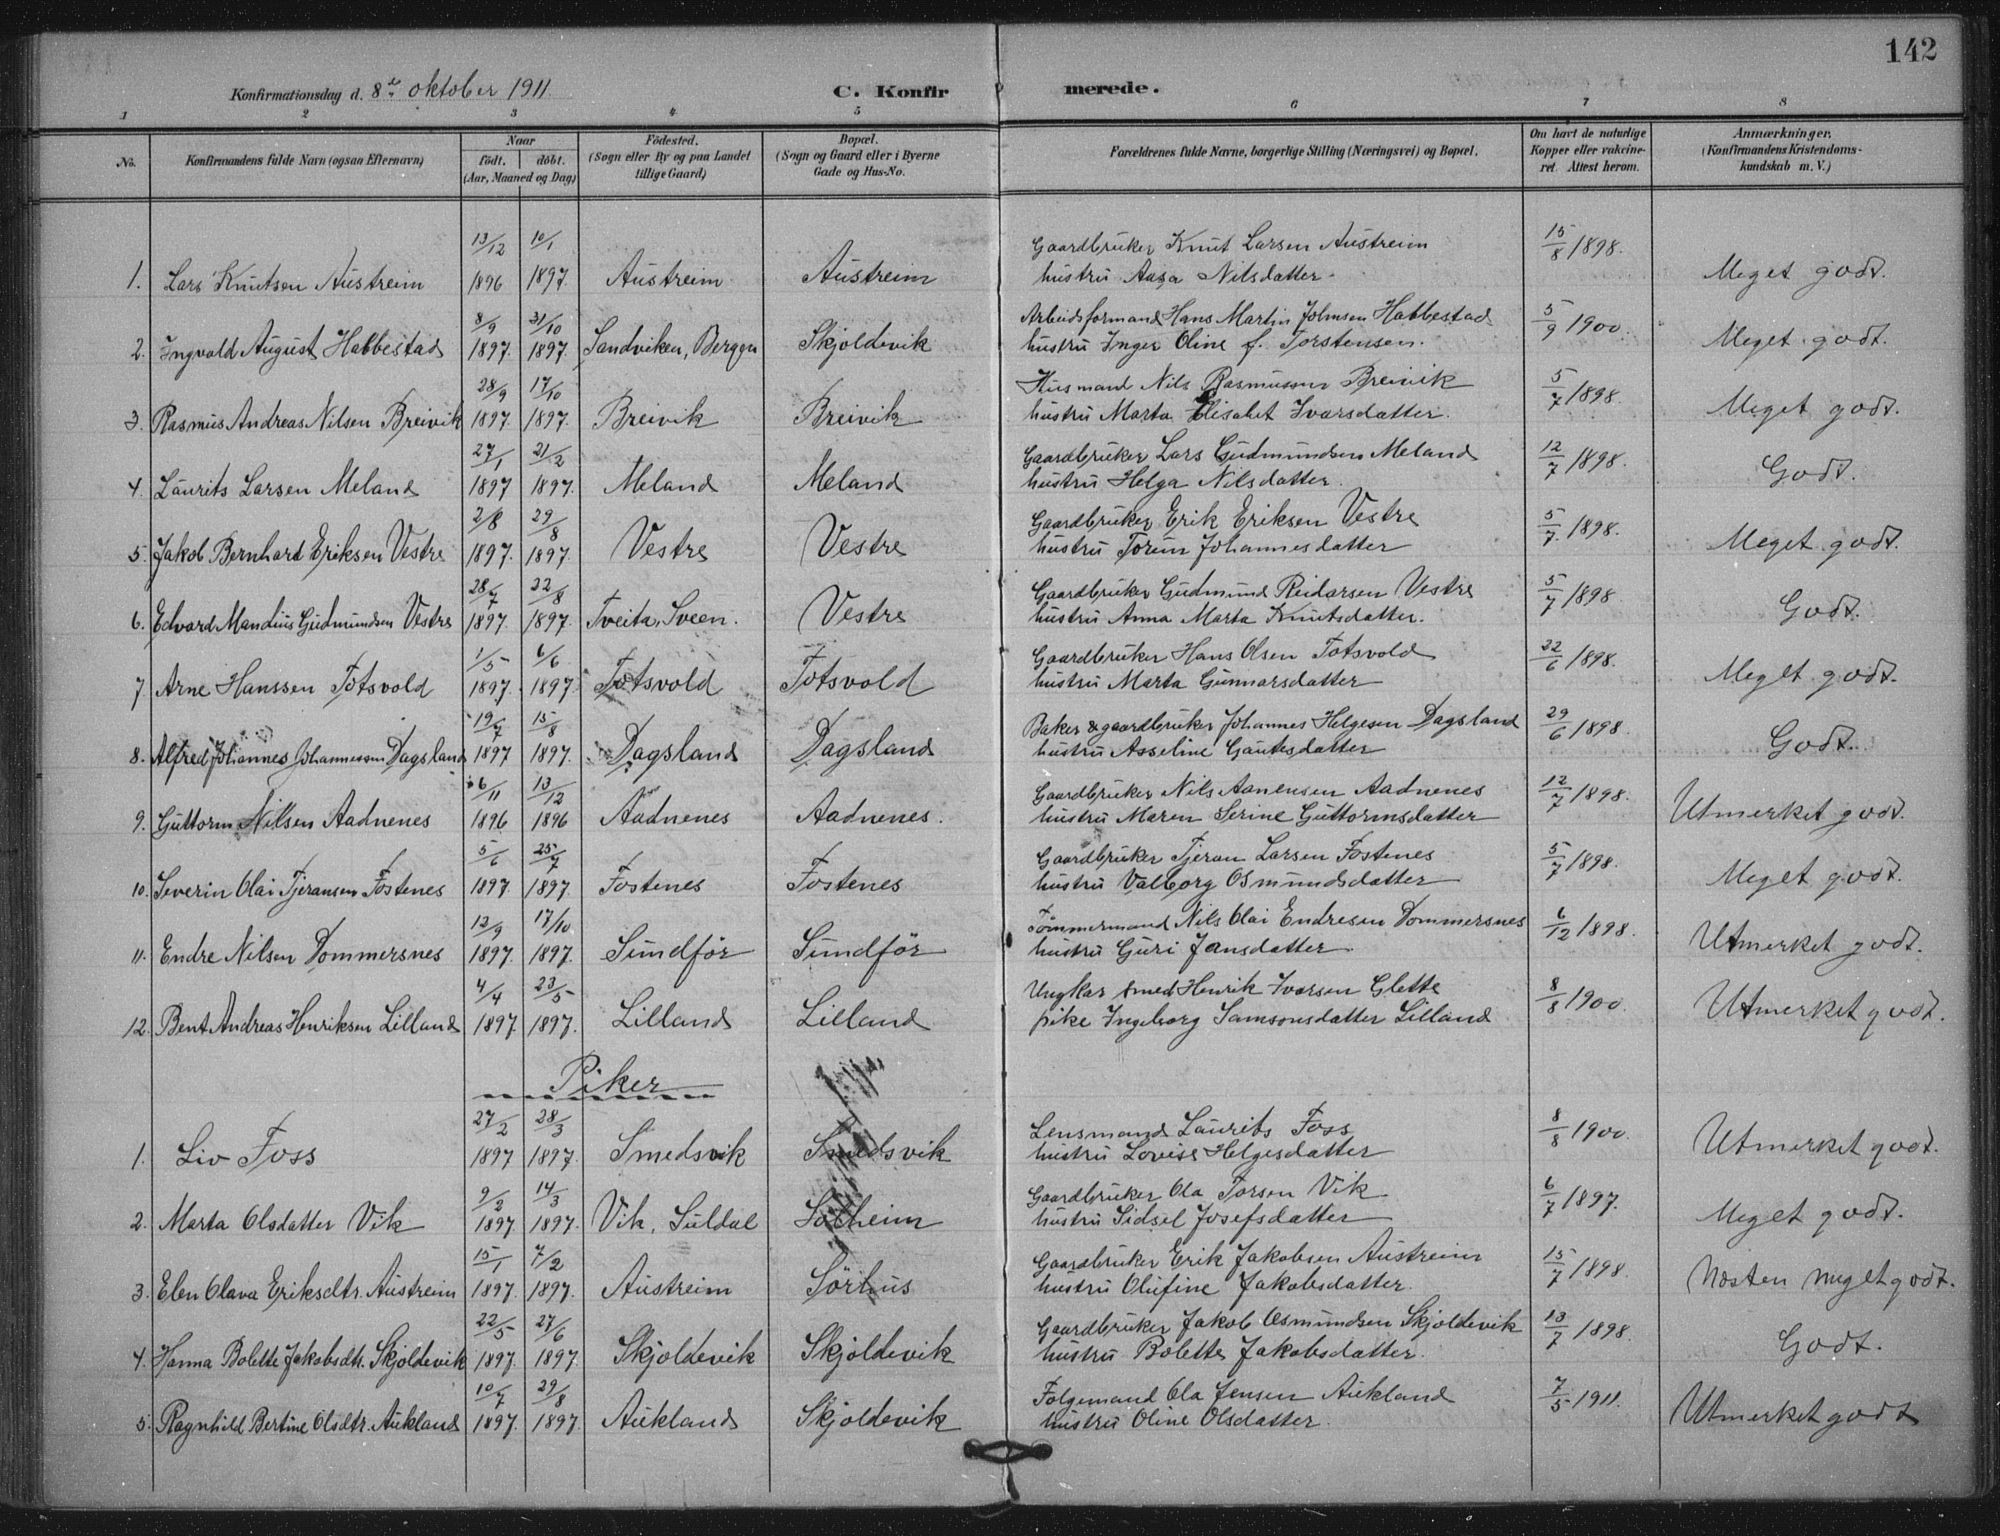 142
Konfirmationsdag d. 8de oktober 1911. C. Konfirmerede.
1 2 3 4 5 6 7 8
No. Konfirmandens fulde Navn (ogsaa Efternavn) Naar født. døbt. (Aar, Maaned og Dag) Fødested. (Sogn eller By og paa Landet tillige Gaard) Bopæl. (Sogn og Gaard eller i Byerne Gade og Hus-No. Forældrenes fulde Navne, borgerlige Stilling (Næringsvei) og Bopæl. Om havt de naturlige Kopper eller vakcineret. Attest herom. Anmærkninger. (Konfirmandens Kristendomskundskab m. V.)
13/12 10/1 Gaardbruker Knut Larsen Austreim 15/8 1898.
1. Lars Knutsen Austreim 1896 1897. Austreim Austreim hustru Aasa Nilsdatter. Meget godt.
8/9 31/10 Arbeidsformand Hans Martin Johnsen Habbestad 5/9 1900.
2. Ingvald August Habbestad 1897. 1897. Sandviken, Bergen Skjoldevik hustru Inger Oline f. Torstensen. Meget godt.
28/9 17/10 Husmand Nils Rasmussen Breivik 5/7 1898.
3. Rasmus Andreas Nilsen Breivik 1897. 1897. Breivik Breivik hustru Marta Elisabet Ivarsdatter. Meget godt.
27/1 21/2 Gaardbruker Lars Gudmundsen Meland 12/7 1898.
4. Laurits Larsen Meland 1897 1897. Meland Meland hustru Helga Nilsdatter. Godt.
2/8 29/8 Gaardbruker Erik Eriksen Vestre 5/7 1898.
5. Jakob Bernhard Eriksen Vestre 1897. 1897. Vestre Vestre hustru Torun Johannesdatter Meget godt.
28/7 22/8 Gaardbruker Gudmund Reidarsen Vestre 5/7 1898
6. Edvard Mandius Gudmundsen Vestre 1897. 1897. Tveita, Sveen. Vestre hustru Anna Marta Knutsdatter. Godt.
1/5 6/6 Gaardbruker Hans Olsen Totsvold 22/6 1898.
7 Arne Hanssen Totsvold 1897. 1897. Totsvold Totsvold hustru Marta Gunnarsdatter Meget godt.
19/7 15/8 Baker & gaardbruker Johannes Helgesen Dagsland 29/6 1898.
8. Alfred Johannes Johannessen Dagsland 1897 1897. Dagsland Dagsland hustru Asseline Gautesdatter Godt.
6/11 13/12 Gaardbruker Nils Aanensen Aadnenes 12/7 1898.
9. Guttorm Nilsen Aadnenes 1896 1896 Aadnenes Aadnenes. hustru Maren Serine Guttormsdatter Utmerket godt.
5/6 25/7 Gaardbruker Tjeran Larsen Fostenes 5/7 1898.
10. Severin Olai Tjeransen Fostenes 1897. 1897. Fostenes Fostenes hustru Valborg Osmundsdatter Meget godt.
12/9 17/10. Tømmermand Nils Olai Endresen Dommersnes 6/12 1898.
11. Endre Nilsen Dommersnes 1897. 1897. Sundfør Sundfør hustru Guri Jansdatter. Utmerket godt.
4/4 23/5 Ungkar smed Henrik Ivarsen Glette 8/8 1900.
12. Bent Andreas Henriksen Lilland 1897. 1897. Lilland Lilland pike Ingeborg Samsonsdatter Lilland Utmerket godt.
Piker
27/2 28/3 Lensmand Laurits Foss 8/8 1900.
1. Liv Foss 1897 1897. Smedsvik Smedsvik hustru Lovise Helgesdatter Utmerket godt.
9/2 14/3 Gaardbruker Ola Torsen Vik 6/7 1897.
2. Marta Olsdatter Vik 1897. 1897. Vik, Suldal Solheim hustru Sidsel Josefsdatter Meget godt.
15/1 7/2 Gaardbruker Erik Jakobsen Austreim 15/7 1898.
3. Elen Olava Eriksdtr. Austreim 1897. 1897. Austreim Sørhus hustru Olufine Jakobsdatter. Næsten meget godt.
22/5 27/6 Gaardbruker Jakob Osmundsen Skjoldevik 13/7 1898.
4. Hanna Bolette Jakobsdtr. Skjoldevik 1897. 1897. Skjoldevik Skjoldevik hustru Bolette Jakobsdatter. Godt.
10/7 29/8 Følgemand Ola Jensen Aukland 7/5 1911.
5. Ragnhild Bertine Olsdtr. Aukland 1897. 1897. Aukland Skjoldevik hustru Oline Olsdatter. Utmerket godt